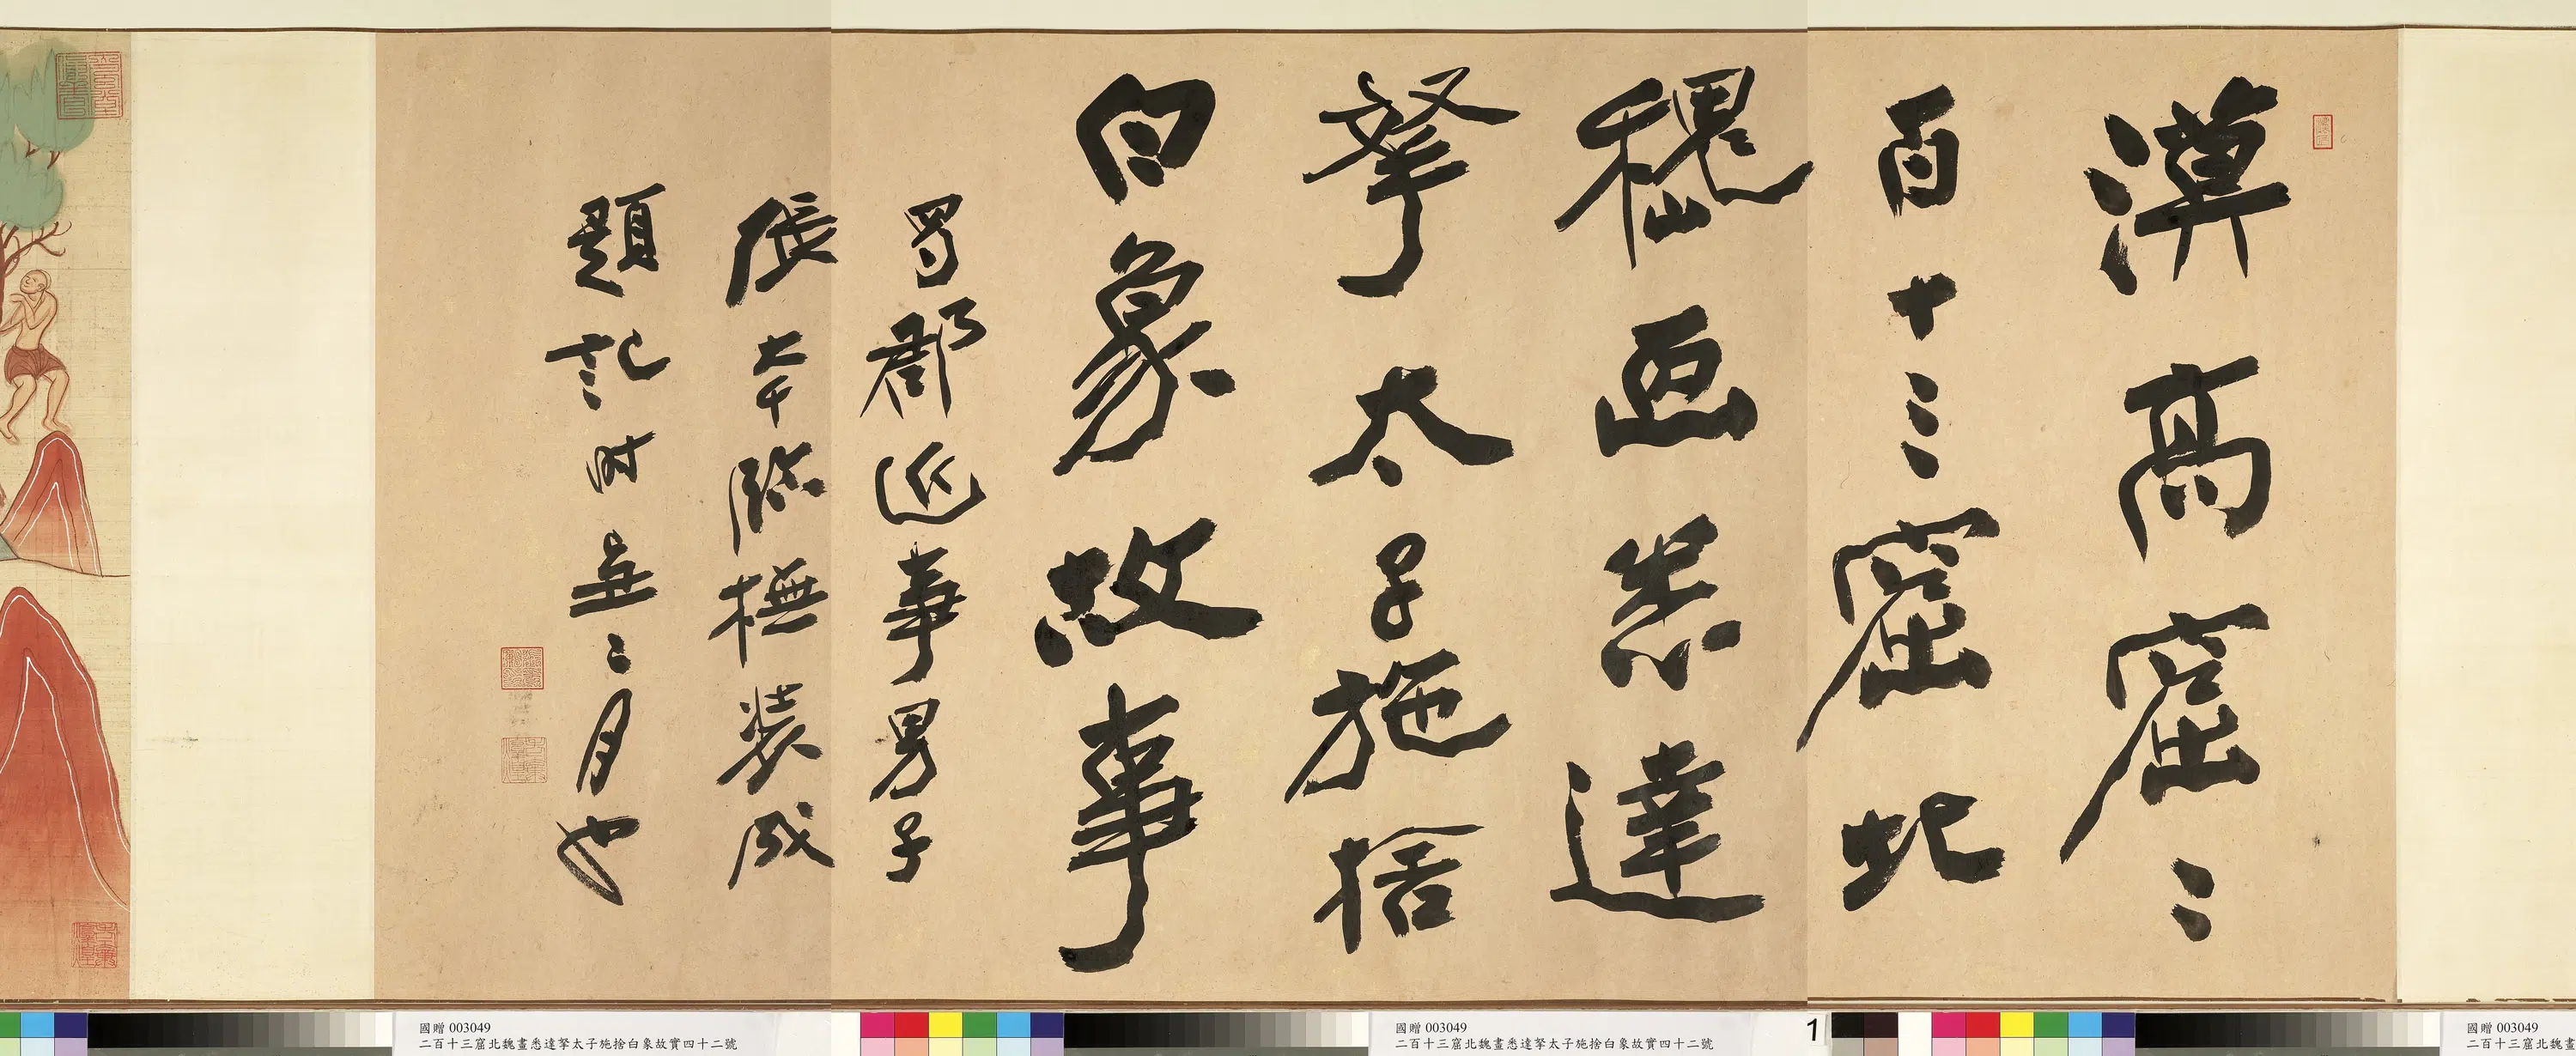 漠高窟二
百十三窟北
魏画悉達
拏太子施捨
白象故事
蜀郡近事男子
張大千臨橅裝成
題記时二月也
國贈 003049
二百十三窟北魏畫悉達拏太子施捨白象故實四十二號
國贈 003049
二百十三窟北魏畫悉達拏太子施捨白象故實四十二號
1
國贈 003049
二百十三窟北魏畫